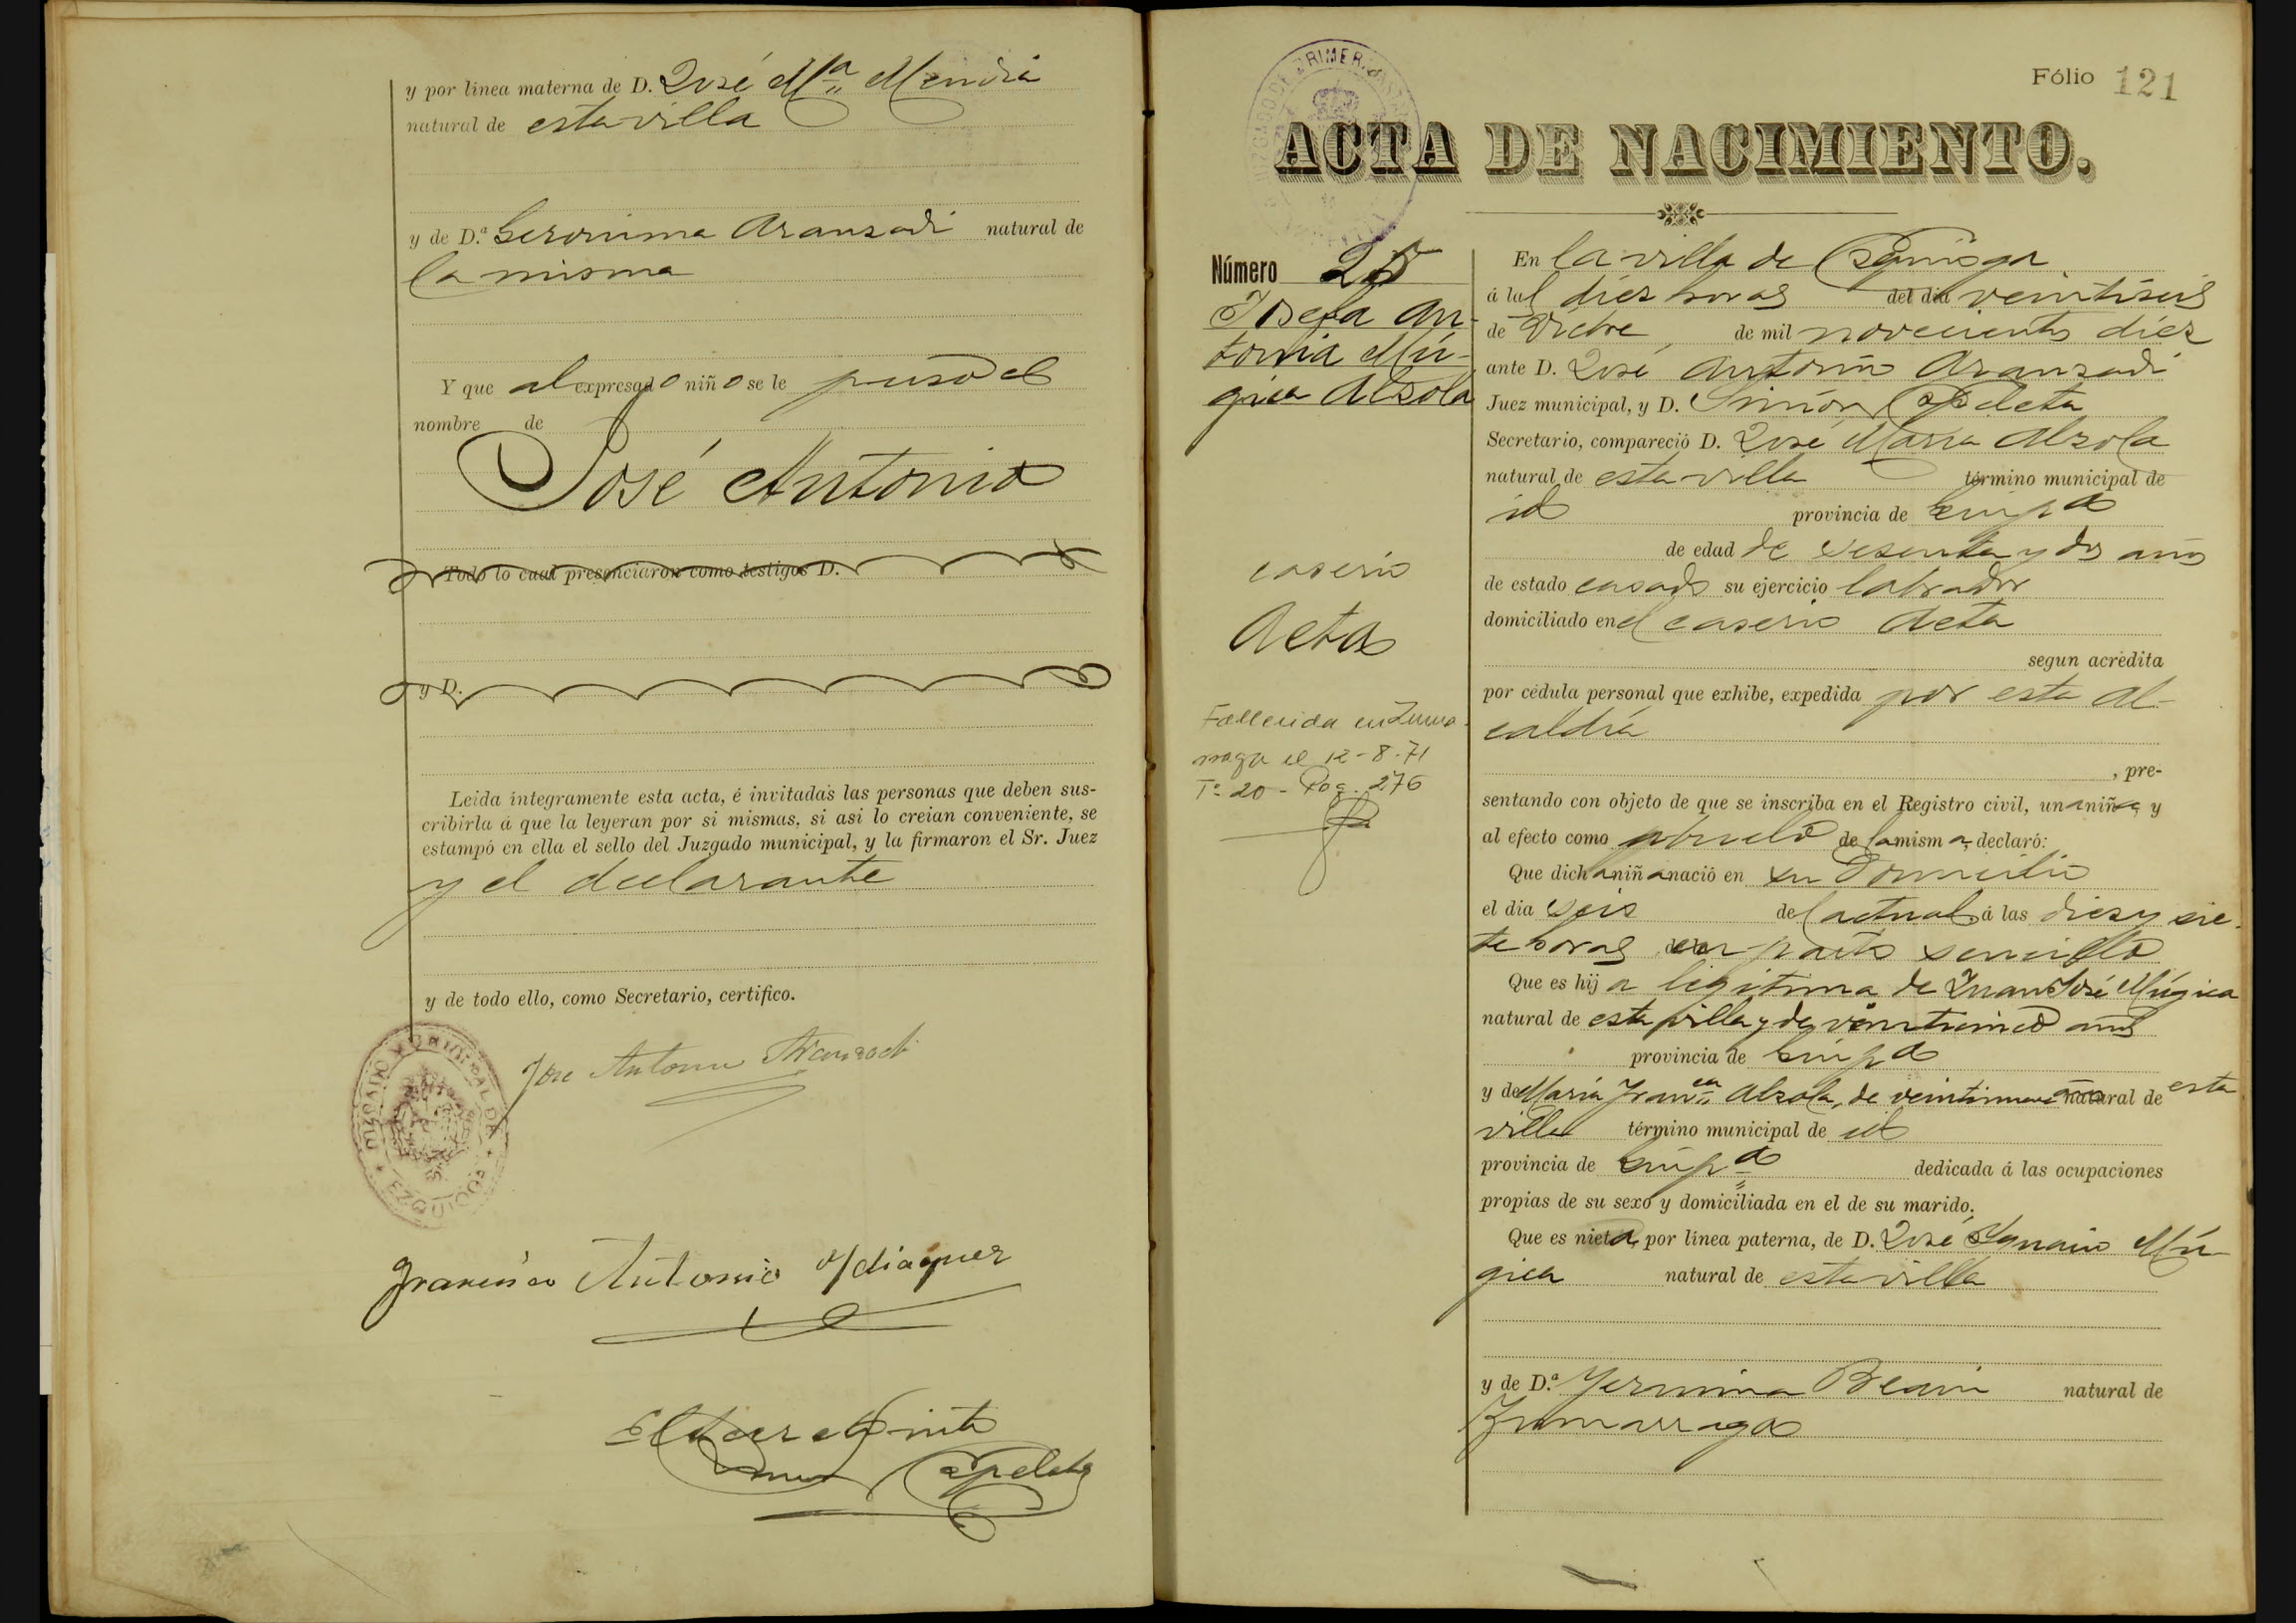 y por línea materna de D. José Mª Mendia
natural de esta villa
y de D.ª Geronima Aranzadi natural de
la misma
Y que al expresado niño se le puso el
nombre de
José Antonio
Todo lo cual presenciaron como testigos D.
y D.
Leida íntegramente esta acta, é invitadas las personas que deben sus-
cribirla á que la leyeran por si mismas, si asi lo creian conveniente, se
estampó en ella el sello del Juzgado municipal, y la firmaron el Sr. Juez
y el declarante
y de todo ello, como Secretario, certifico.
JUZGADO MUNICIPAL DE EZQUIOGA
José Antonio Aranzadi
Francisco Antonio Ydiaquez
Simon Apeleta
Fólio 121
ACTA DE NACIMIENTO.
Número 25
Josefa An-
tonia Mú-
gica Alzola
caserio
Aeta
Fallecida en Zuma-
rraga el 12-8-71
Tº 20 - Pag. 276
En la villa de Ezquioga
á las diez horas del dia veintiseis
de Dicbre, de mil novecientos diez
ante D. José Antonio Aranzadi
Juez municipal, y D. Simón Apeleta
Secretario, compareció D. José María Alzola
natural de esta villa término municipal de
id provincia de Guipª
de edad de sesenta y dos años
de estado casado su ejercicio labrador
domiciliado en el caserio Aeta
segun acredita
por cédula personal que exhibe, expedida por esta al-
caldía
, pre-
sentando con objeto de que se inscriba en el Registro civil, una niña, y
al efecto como abuelo de la misma, declaró:
Que dicha niña nació en su domicilio
el dia seis del actual á las diez y sie-
te horas en parto sencillo
Que es hija legitima de Juan José Múgica
natural de esta villa, y de veinticinco años
provincia de Guipª
y de María Franca Alzola, de veintinueve años natural de esta
villa término municipal de id
provincia de Guipª dedicada á las ocupaciones
propias de su sexo y domiciliada en el de su marido.
Que es nieta, por línea paterna, de D. José Ygnacio Mú-
gica natural de esta villa
y de D.ª Yernima natural de
Zumarraga